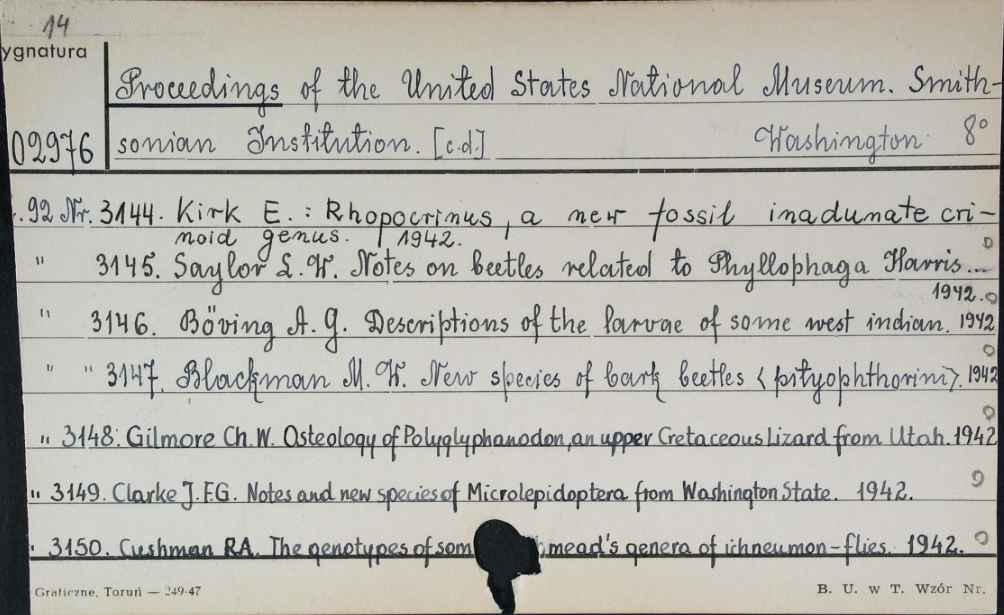 14
ygnatura
Proceedings of the United States National Museum. Smith-
02976 sonian Institution. [c.d.] Washington 8°
. 92 Nr. 3144. Kirk E. : Rhopocrinus, a new fossil inadunate cri-
noid genus. 1942.
" 3145. Saylor L.W. Notes on beetles related to Phyllophaga Harris...
1942.
" 3146. Böving A. G. Descriptions of the larvae of some west indian. 1942
" " 3147. Blackman M. W. New species of bark beetles <pityophthorini>. 1942
" 3148. Gilmore Ch. W. Osteology of Polyglyphanodon, an upper Cretaceous Lizard from Utah. 1942
" 3149. Clarke J.F.G. Notes and new species of Microlepidoptera from Washington State. 1942.
" 3150. Cushman RA. The genotypes of som mead's genera of ichneumon-flies. 1942.
Graficzne, Toruń — 249-47 B. U. w T. Wzór Nr.